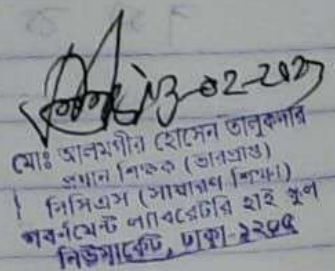 ১৩-০২-২০২৩
মোঃ আলমগীর হোসেন তালুকদার
প্রধান শিক্ষক (ভারপ্রাপ্ত)
বিসিএস (সাধারণ শিক্ষা)
গবর্নমেন্ট ল্যাবরেটরি হাই স্কুল
নিউমার্কেট, ঢাকা-১২০৫